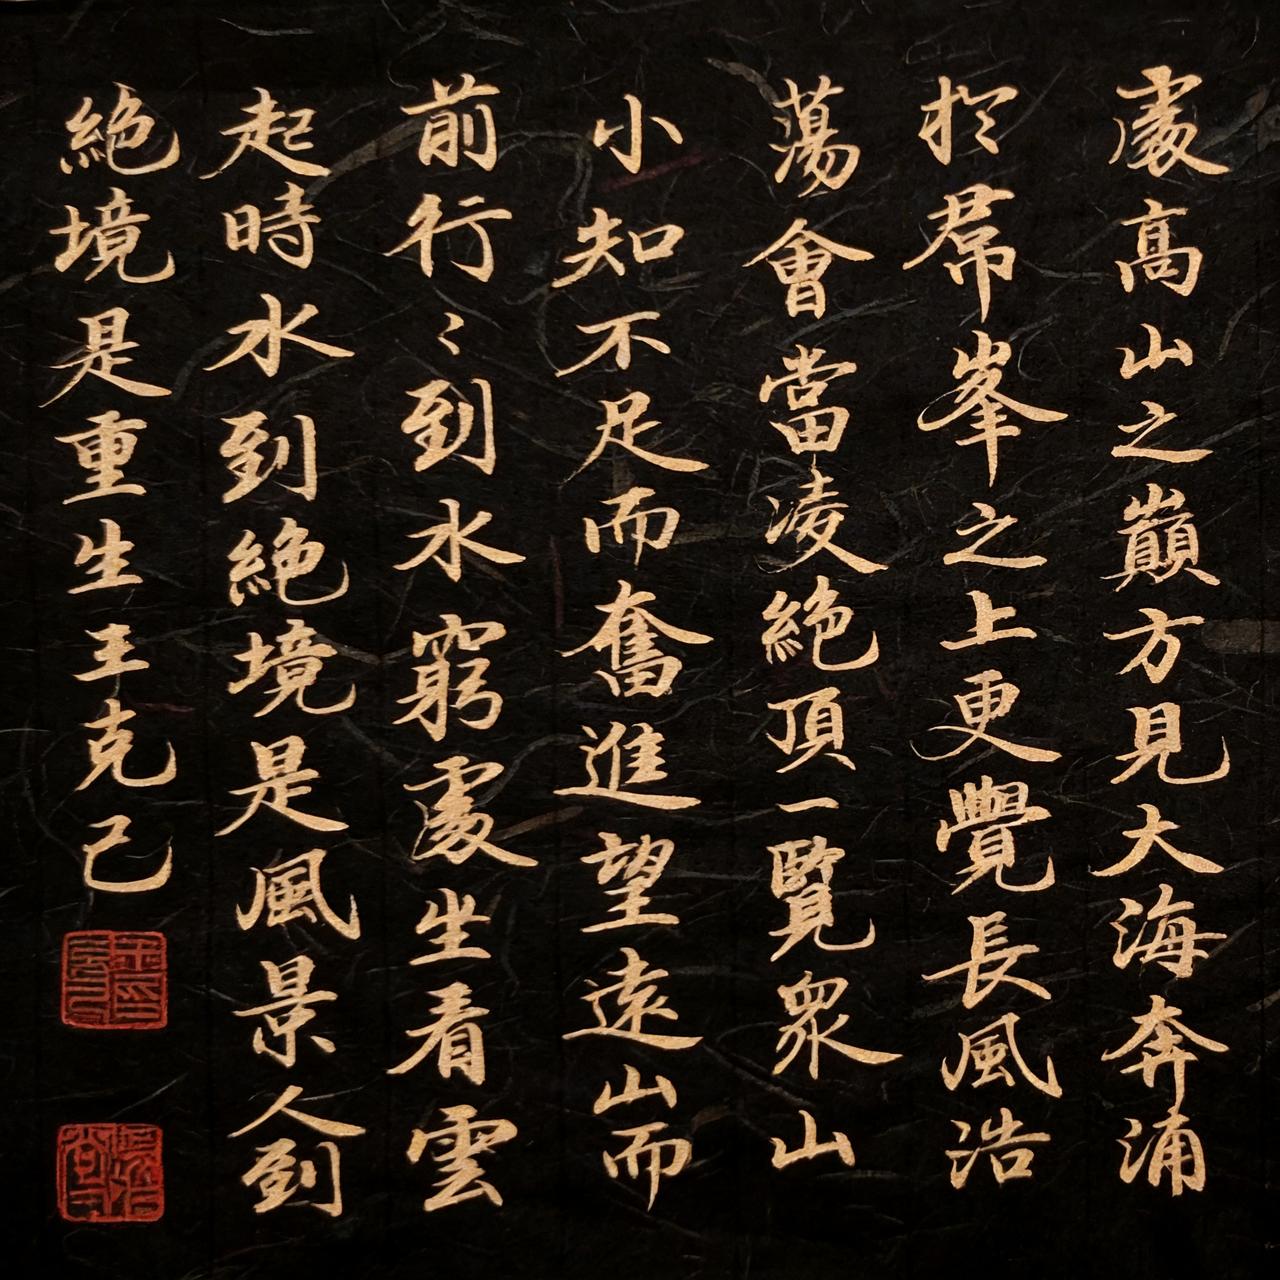 處高山之巔方見大海奔浦
於羣峯之上更覺長風浩
蕩會當凌絶頂一覽衆山
小知不足而奮進望遠山而
前行〻到水窮處坐看雲
起時水到絶境是風景人到
絶境是重生王克己